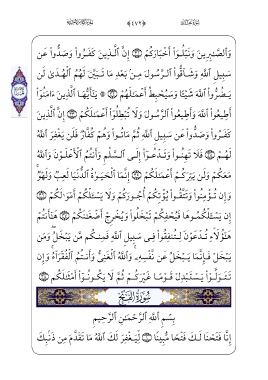 وَٱلصَّٰبِرِينَ وَنَبْلُوَا۟ أَخْبَارَكُمْ ۝ إِنَّ ٱلَّذِينَ كَفَرُوا۟ وَصَدُّوا۟ عَن
سَبِيلِ ٱللَّهِ وَشَآقُّوا۟ ٱلرَّسُولَ مِنۢ بَعْدِ مَا تَبَيَّنَ لَهُمُ ٱلْهُدَىٰ لَن
يَضُرُّوا۟ ٱللَّهَ شَيْـًٔا وَسَيُحْبِطُ أَعْمَٰلَهُمْ ۝ ۞ يَٰٓأَيُّهَا ٱلَّذِينَ ءَامَنُوٓا۟
أَطِيعُوا۟ ٱللَّهَ وَأَطِيعُوا۟ ٱلرَّسُولَ وَلَا تُبْطِلُوٓا۟ أَعْمَٰلَكُمْ ۝ إِنَّ ٱلَّذِينَ
كَفَرُوا۟ وَصَدُّوا۟ عَن سَبِيلِ ٱللَّهِ ثُمَّ مَاتُوا۟ وَهُمْ كُفَّارٌ فَلَن يَغْفِرَ ٱللَّهُ
لَهُمْ ۝ فَلَا تَهِنُوا۟ وَتَدْعُوٓا۟ إِلَى ٱلسَّلْمِ وَأَنتُمُ ٱلْأَعْلَوْنَ وَٱللَّهُ
مَعَكُمْ وَلَن يَتِرَكُمْ أَعْمَٰلَكُمْ ۝ إِنَّمَا ٱلْحَيَوٰةُ ٱلدُّنْيَا لَعِبٌ وَلَهْوٌ
وَإِن تُؤْمِنُوا۟ وَتَتَّقُوا۟ يُؤْتِكُمْ أُجُورَكُمْ وَلَا يَسْـَٔلْكُمْ أَمْوَٰلَكُمْ ۝
إِن يَسْـَٔلْكُمُوهَا فَيُحْفِكُمْ تَبْخَلُوا۟ وَيُخْرِجْ أَضْغَٰنَكُمْ ۝ هَٰٓأَنتُمْ
هَٰٓؤُلَآءِ تُدْعَوْنَ لِتُنفِقُوا۟ فِى سَبِيلِ ٱللَّهِ فَمِنكُم مَّن يَبْخَلُ وَمَن
يَبْخَلْ فَإِنَّمَا يَبْخَلُ عَن نَّفْسِهِۦ وَٱللَّهُ ٱلْغَنِىُّ وَأَنتُمُ ٱلْفُقَرَآءُ وَإِن
تَتَوَلَّوْا۟ يَسْتَبْدِلْ قَوْمًا غَيْرَكُمْ ثُمَّ لَا يَكُونُوٓا۟ أَمْثَٰلَكُم ۝
سُورَةُ ٱلْفَتْحِ
بِسْمِ ٱللَّهِ ٱلرَّحْمَٰنِ ٱلرَّحِيمِ
إِنَّا فَتَحْنَا لَكَ فَتْحًا مُّبِينًا ۝ لِّيَغْفِرَ لَكَ ٱللَّهُ مَا تَقَدَّمَ مِن ذَنۢبِكَ